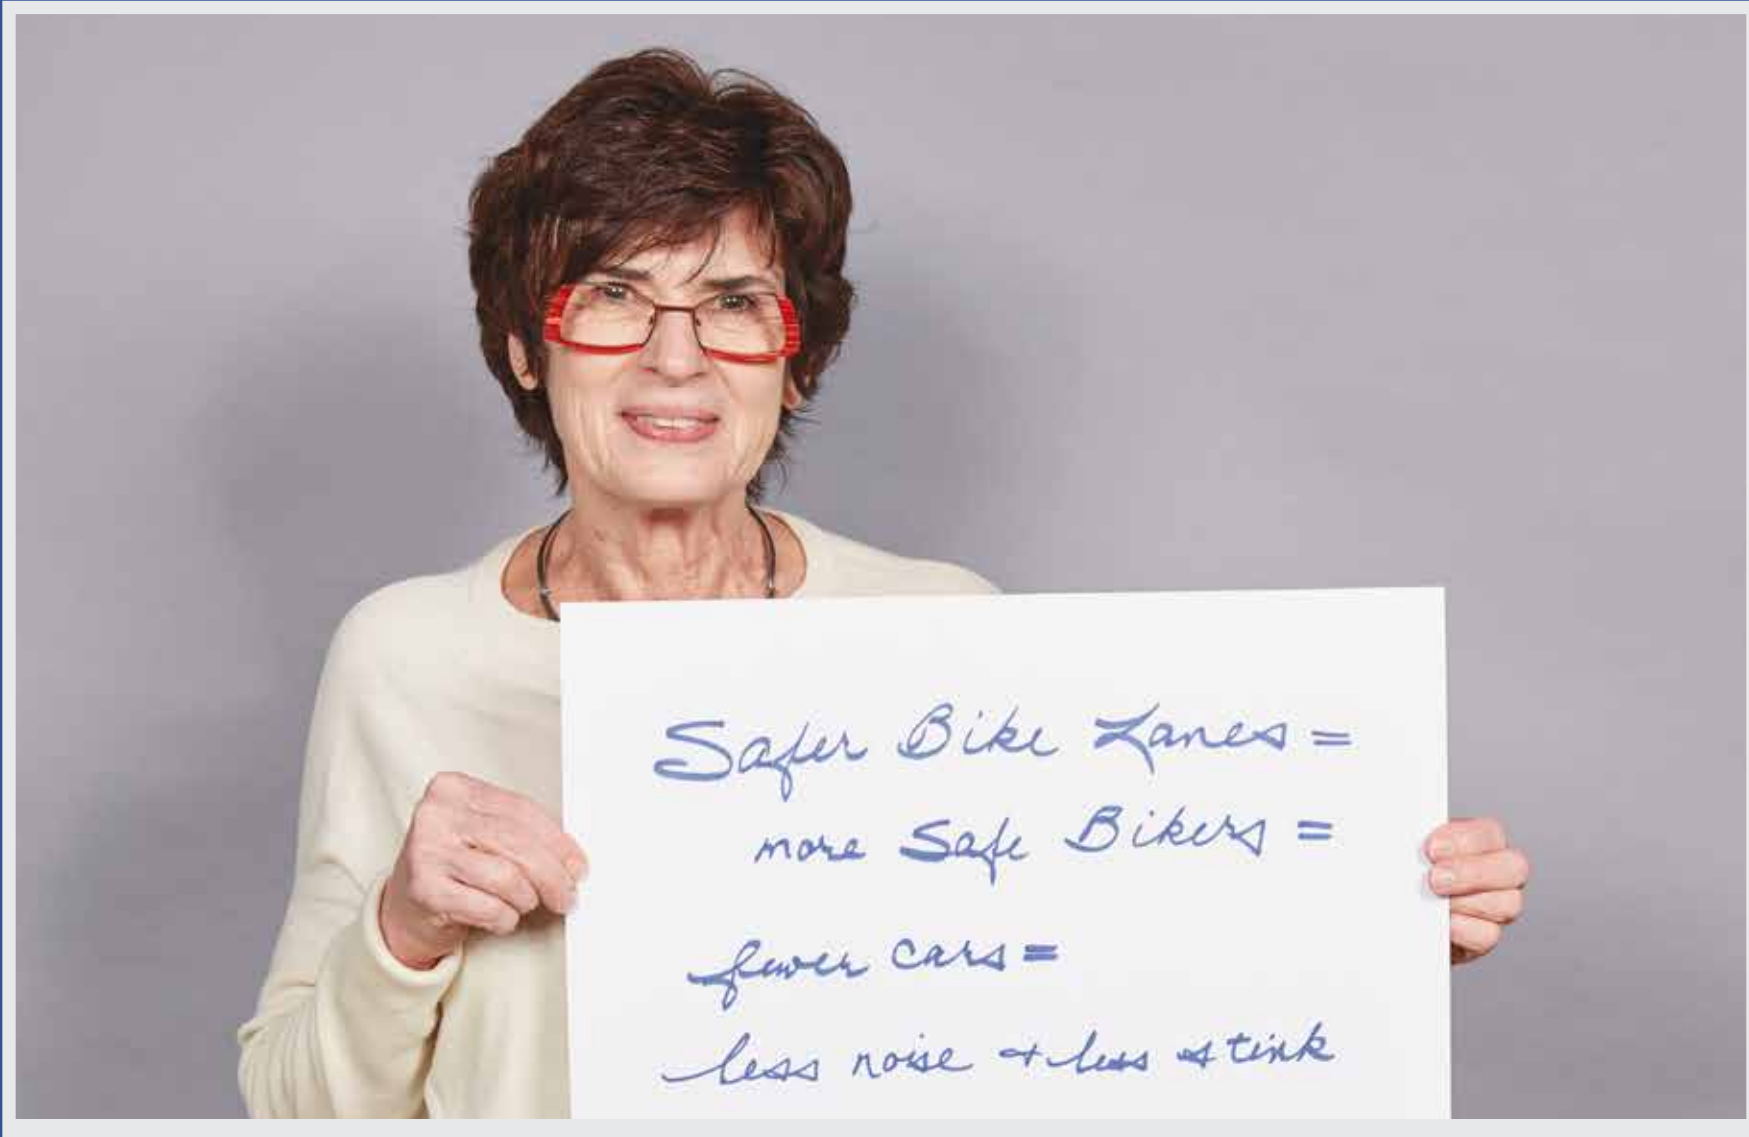 Safer Bike Lanes =
more Safe Bikers =
fewer cars =
less noise + less stink